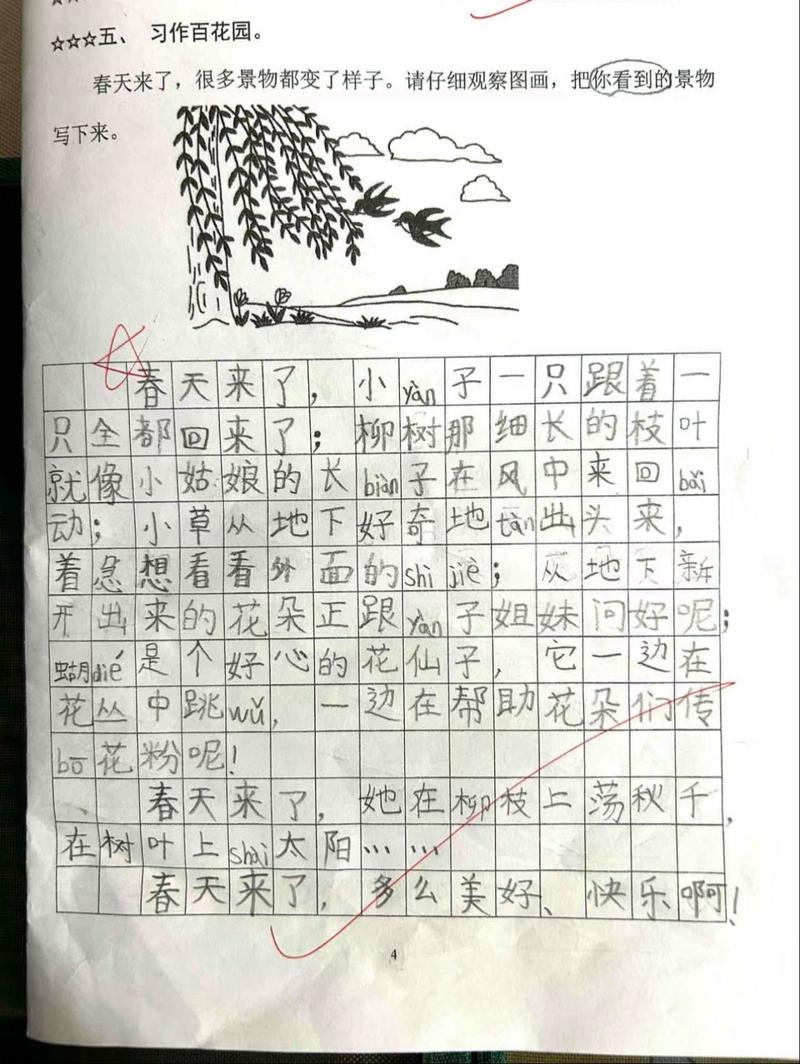 ☆☆☆五、 习作百花园。
春天来了，很多景物都变了样子。请仔细观察图画，把你看到的景物
写下来。
春天来了，小yàn子一只跟着一
只全都回来了；柳树那细长的枝叶
就像小姑娘的长biàn子在风中来回bǎi
动；小草从地下好奇地tàn出头来，
着急想看看外面的shì jiè；从地下新
开出来的花朵正跟yàn子姐妹问好呢；
蝴dié是个好心的花仙子，它一边在
花丛中跳wǔ，一边在帮助花朵们传
bō花粉呢！
春天来了，她在柳枝上荡秋千，
在树叶上shài太阳……
春天来了，多么美好、快乐啊！
4